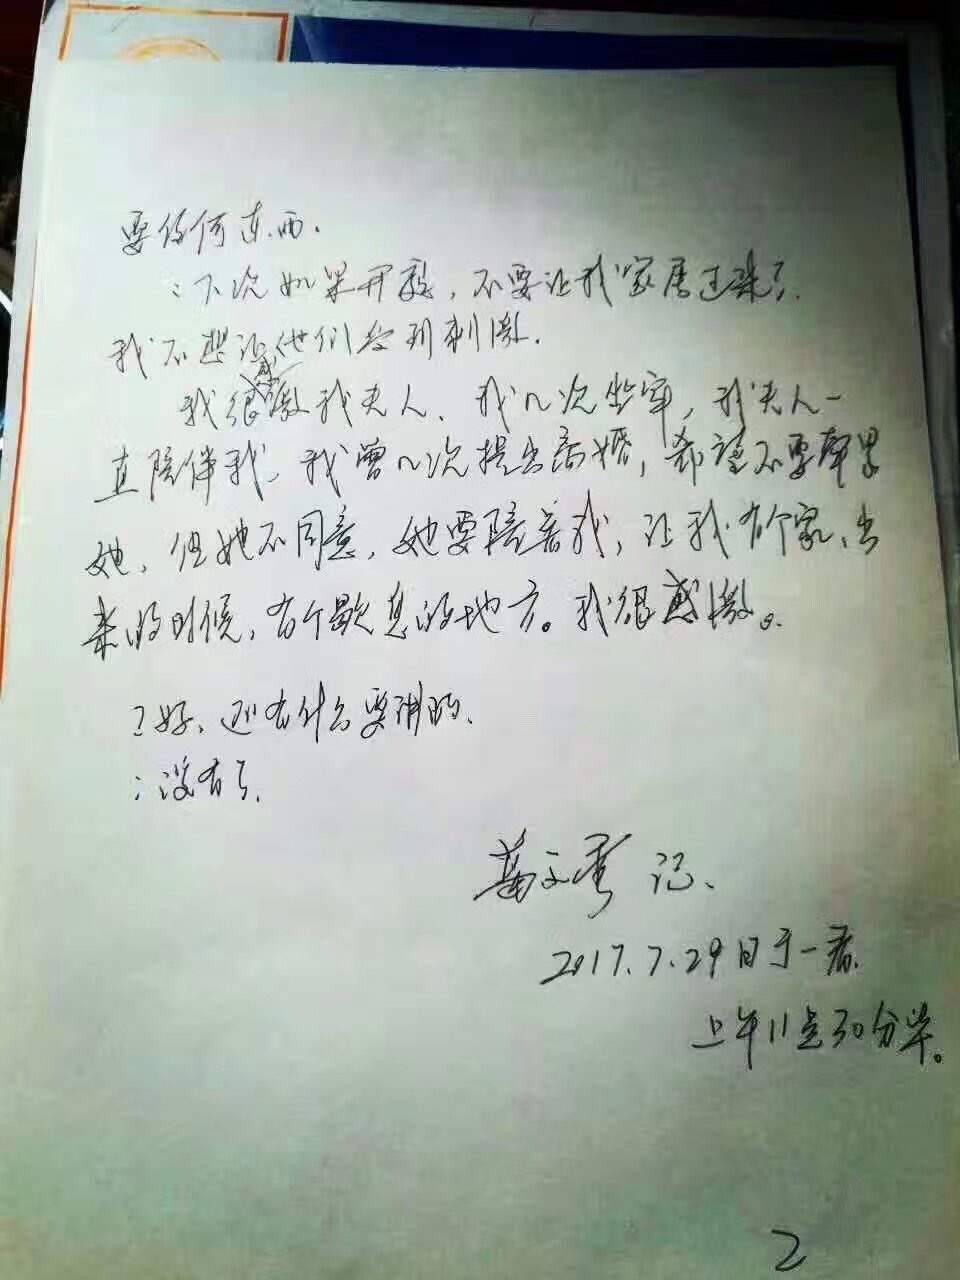 要任何东西.
:下次如果开庭,不要让我家属过来了.
我不想让他们受到刺激.
我很感激我夫人.我几次坐牢,我夫人一
直陪伴我.我曾几次提出离婚,希望不要牵累
她,但她不同意,她要陪着我,让我有个家,出
来的时候,有个歇息的地方。我很感激。
?好,还有什么要讲的.
:没有了.
葛文秀 记.
2017.7.29日于一看.
上午11点30分毕。
2